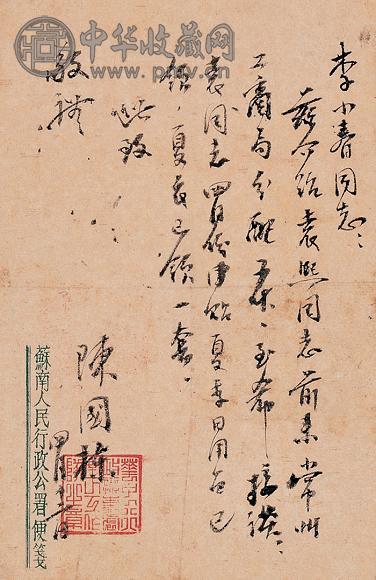 李小春同志:
兹介绍袁熙同志前来常州
工商局分配工作,至希接洽:
袁同志四月份津贴夏季日用金已
领,夏衣已领一套。
此致
敬礼
陳國棟
四月
蘇南人民行政公署便箋
中华收藏网